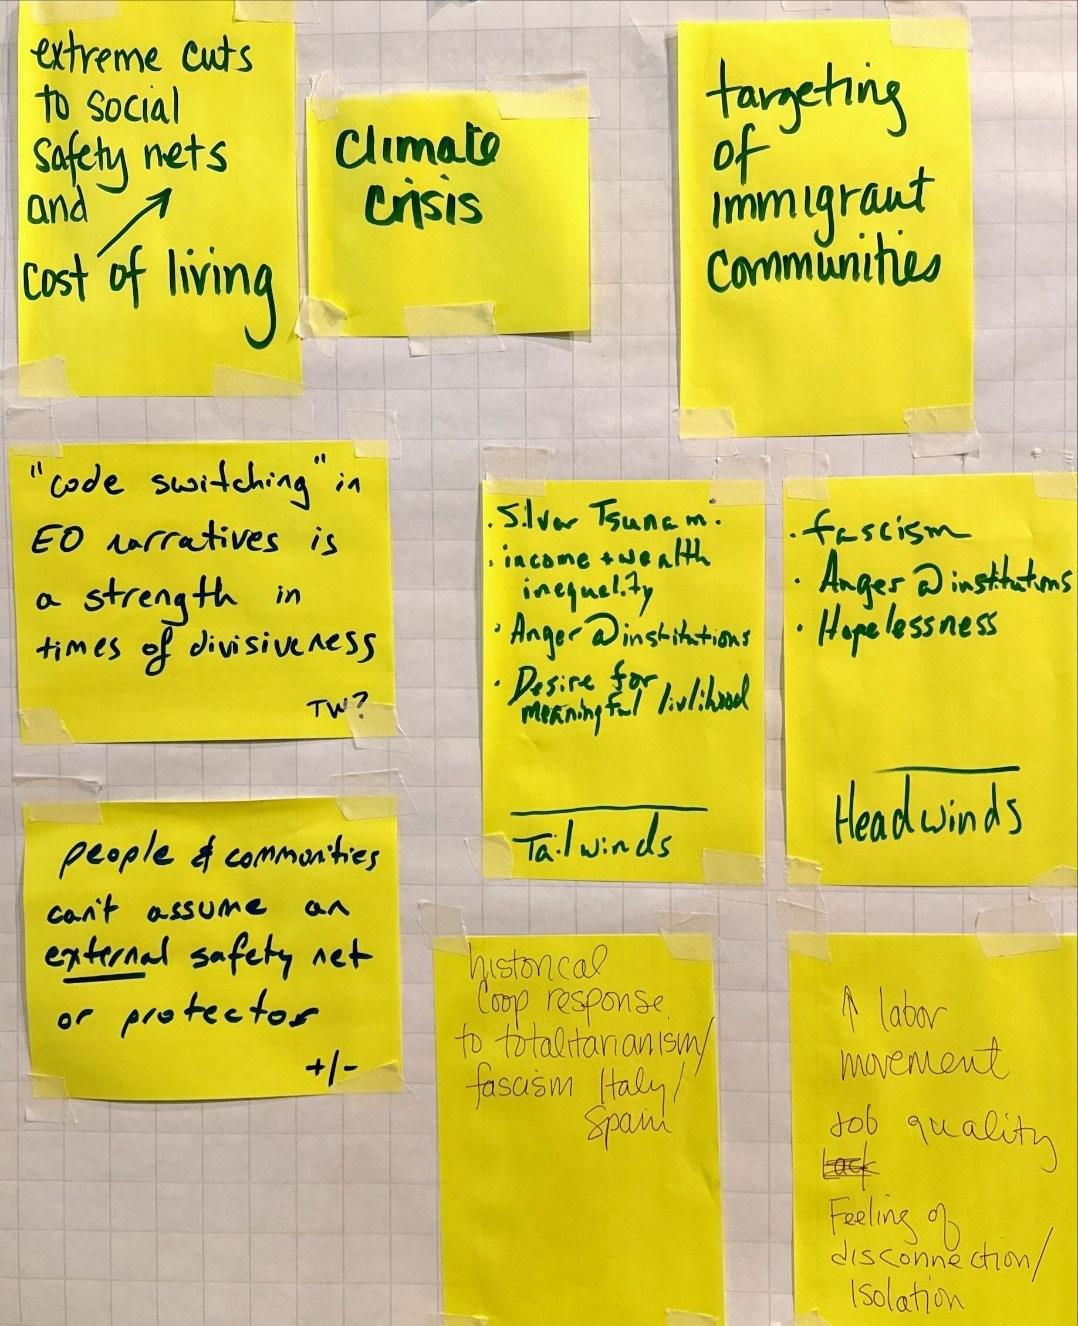 extreme cuts
to social
safety nets
and ↗
cost of living
Climate
crisis
targeting
of
immigrant
communities
"code switching" in
EO narratives is
a strength in
times of divisiveness
TW?
. Silver Tsunami
. income + wealth
inequality
. Anger @ institutions
. Desire for
meaningful livlihood
Tailwinds
. fascism
. Anger @ institutions
. Hopelessness
Headwinds
people & communities
can't assume an
external safety net
or protector
+/-
historical
Coop response
to totalitarianism/
fascism Italy/
Spain
↑ labor
movement
Job quality
Lack
Feeling of
disconnection/
Isolation